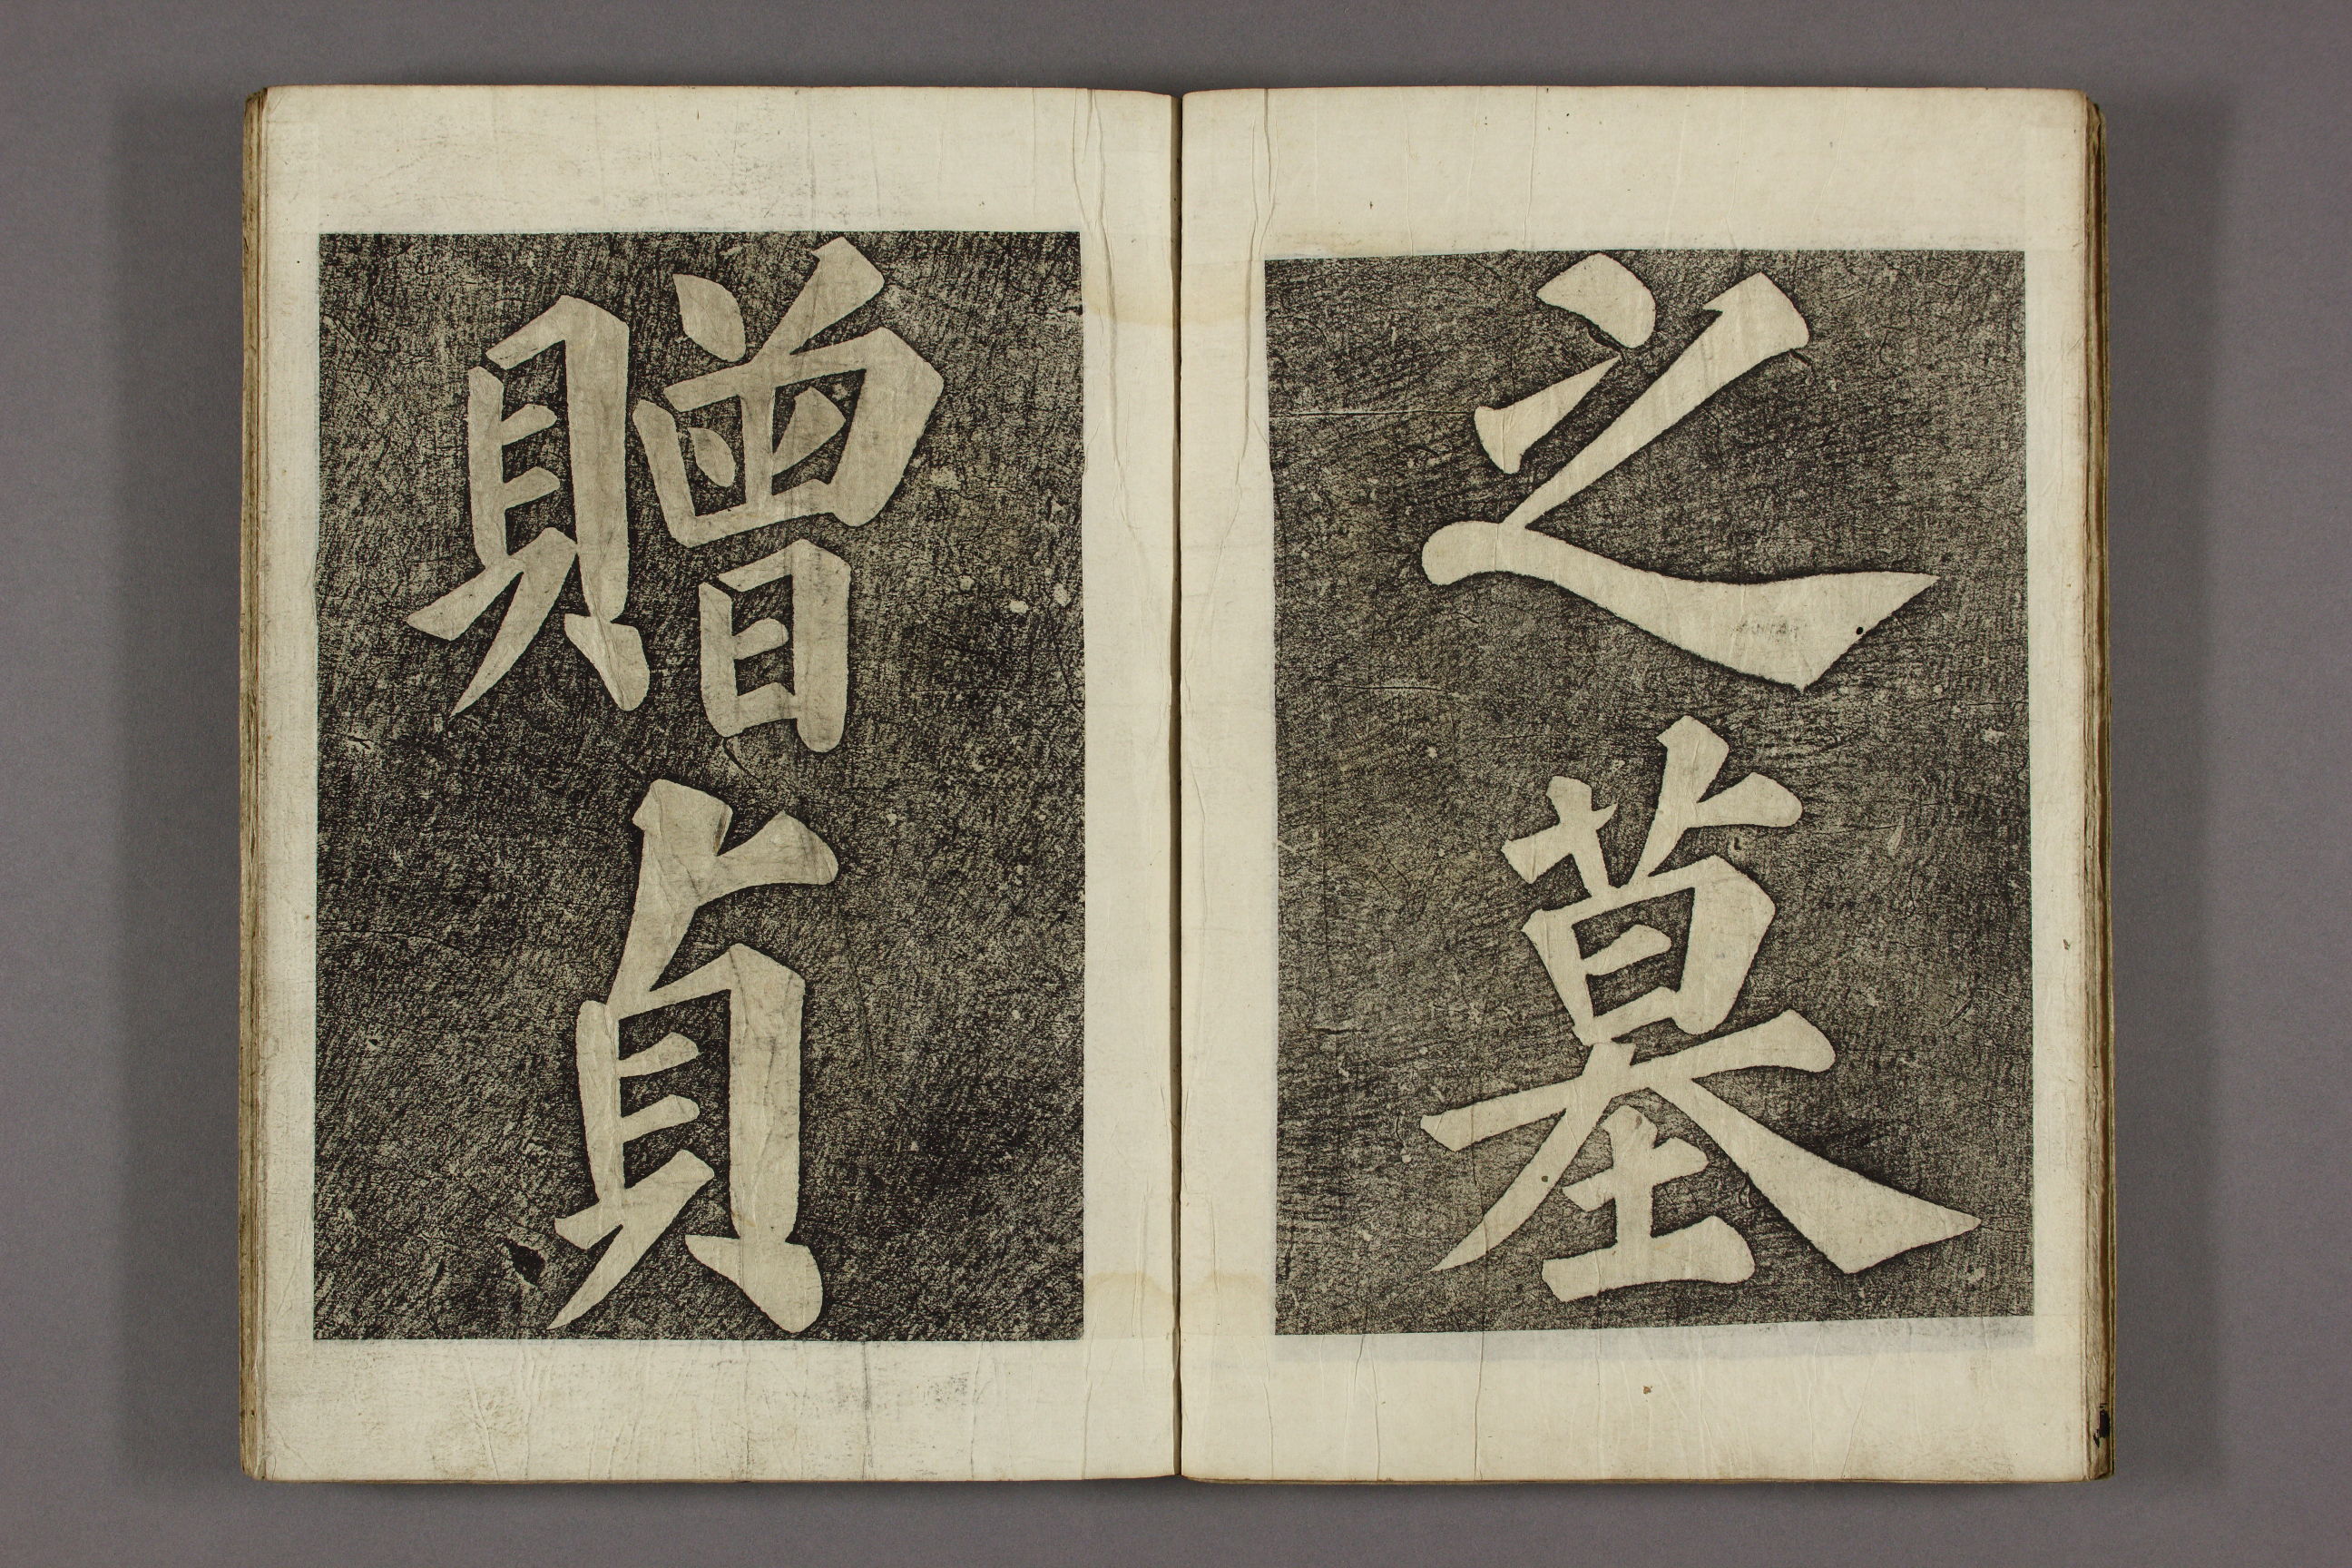 之墓
贈貞